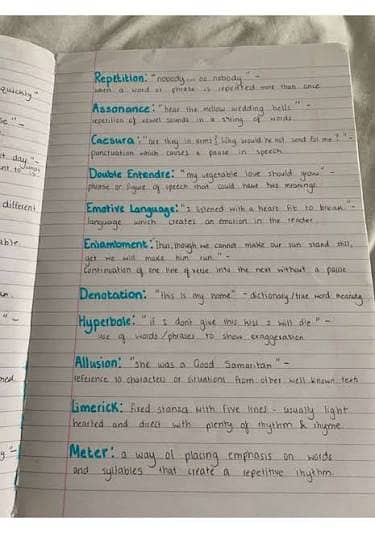 quickly"
Repetition: "nobody... oo nobody" -
when a word or phrase is repeated more than once
Assonance: "hear the mellow wedding bells" -
repetition of vowel sounds in a string of words.
Caesura: "are they in arms? Why would he not send for me?" -
punctuation which causes a pause in speech.
Double Entendre: "my vegetable love should grow" -
phrase or figure of speech that could have two meanings.
Emotive Language: "I listened with a heart fit to break" -
language which creates an emotion in the reader.
Enjambment: Thus, though we cannot make our sun stand still,
yet we will make him run." -
Continuation of one line of verse into the next without a pause
Denotation: "this is my home" - dictionary/true word meaning
Hyperbole: "if I don't give this kiss I will die." -
use of words/phrases to show exaggeration
Allusion: "she was a Good Samaritan" -
reference to characters or situations from other well known texts
Limerick: fixed stanza with five lines - usually light
hearted and direct with plenty of rhythm & rhyme.
Meter: a way of placing emphasis on words
and syllables that create a repetitive rhythm.
different